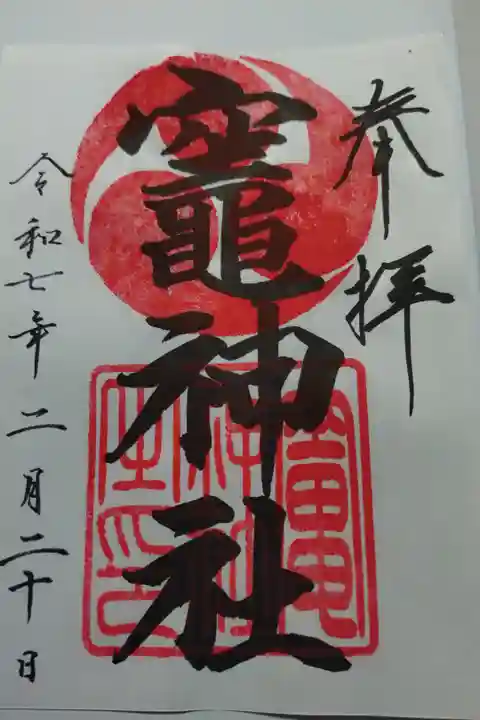 奉拝
竈神社
令和七年二月二十日